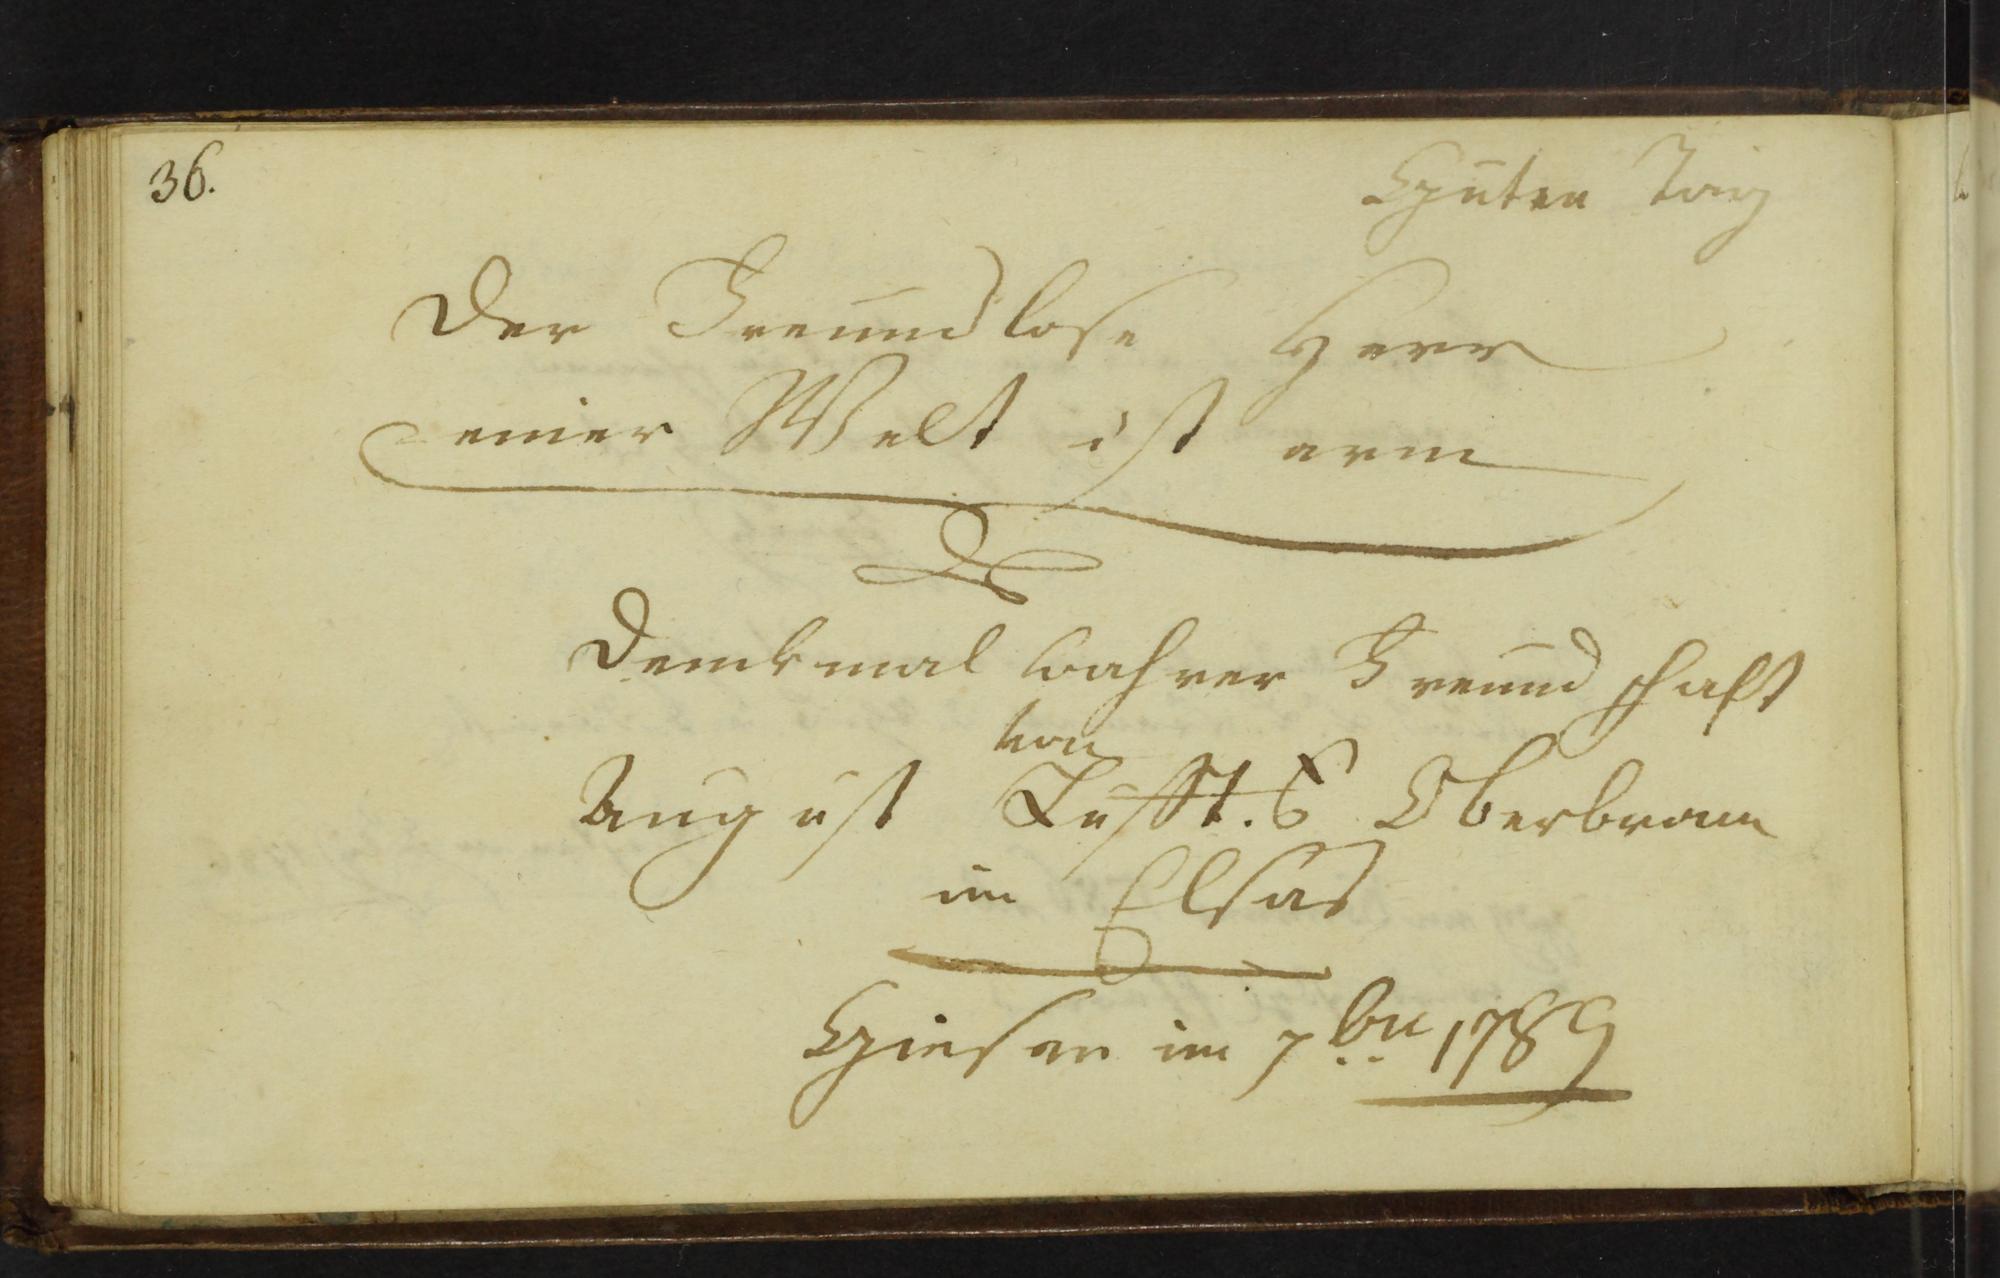 36.
Guten Tag
Der Freundlose Herr
einer Welt ist arm
Denkmal wahrer Freundschaft
von
August Lufft. Oberbronn
im Elsas
Giesen im 7br 1789